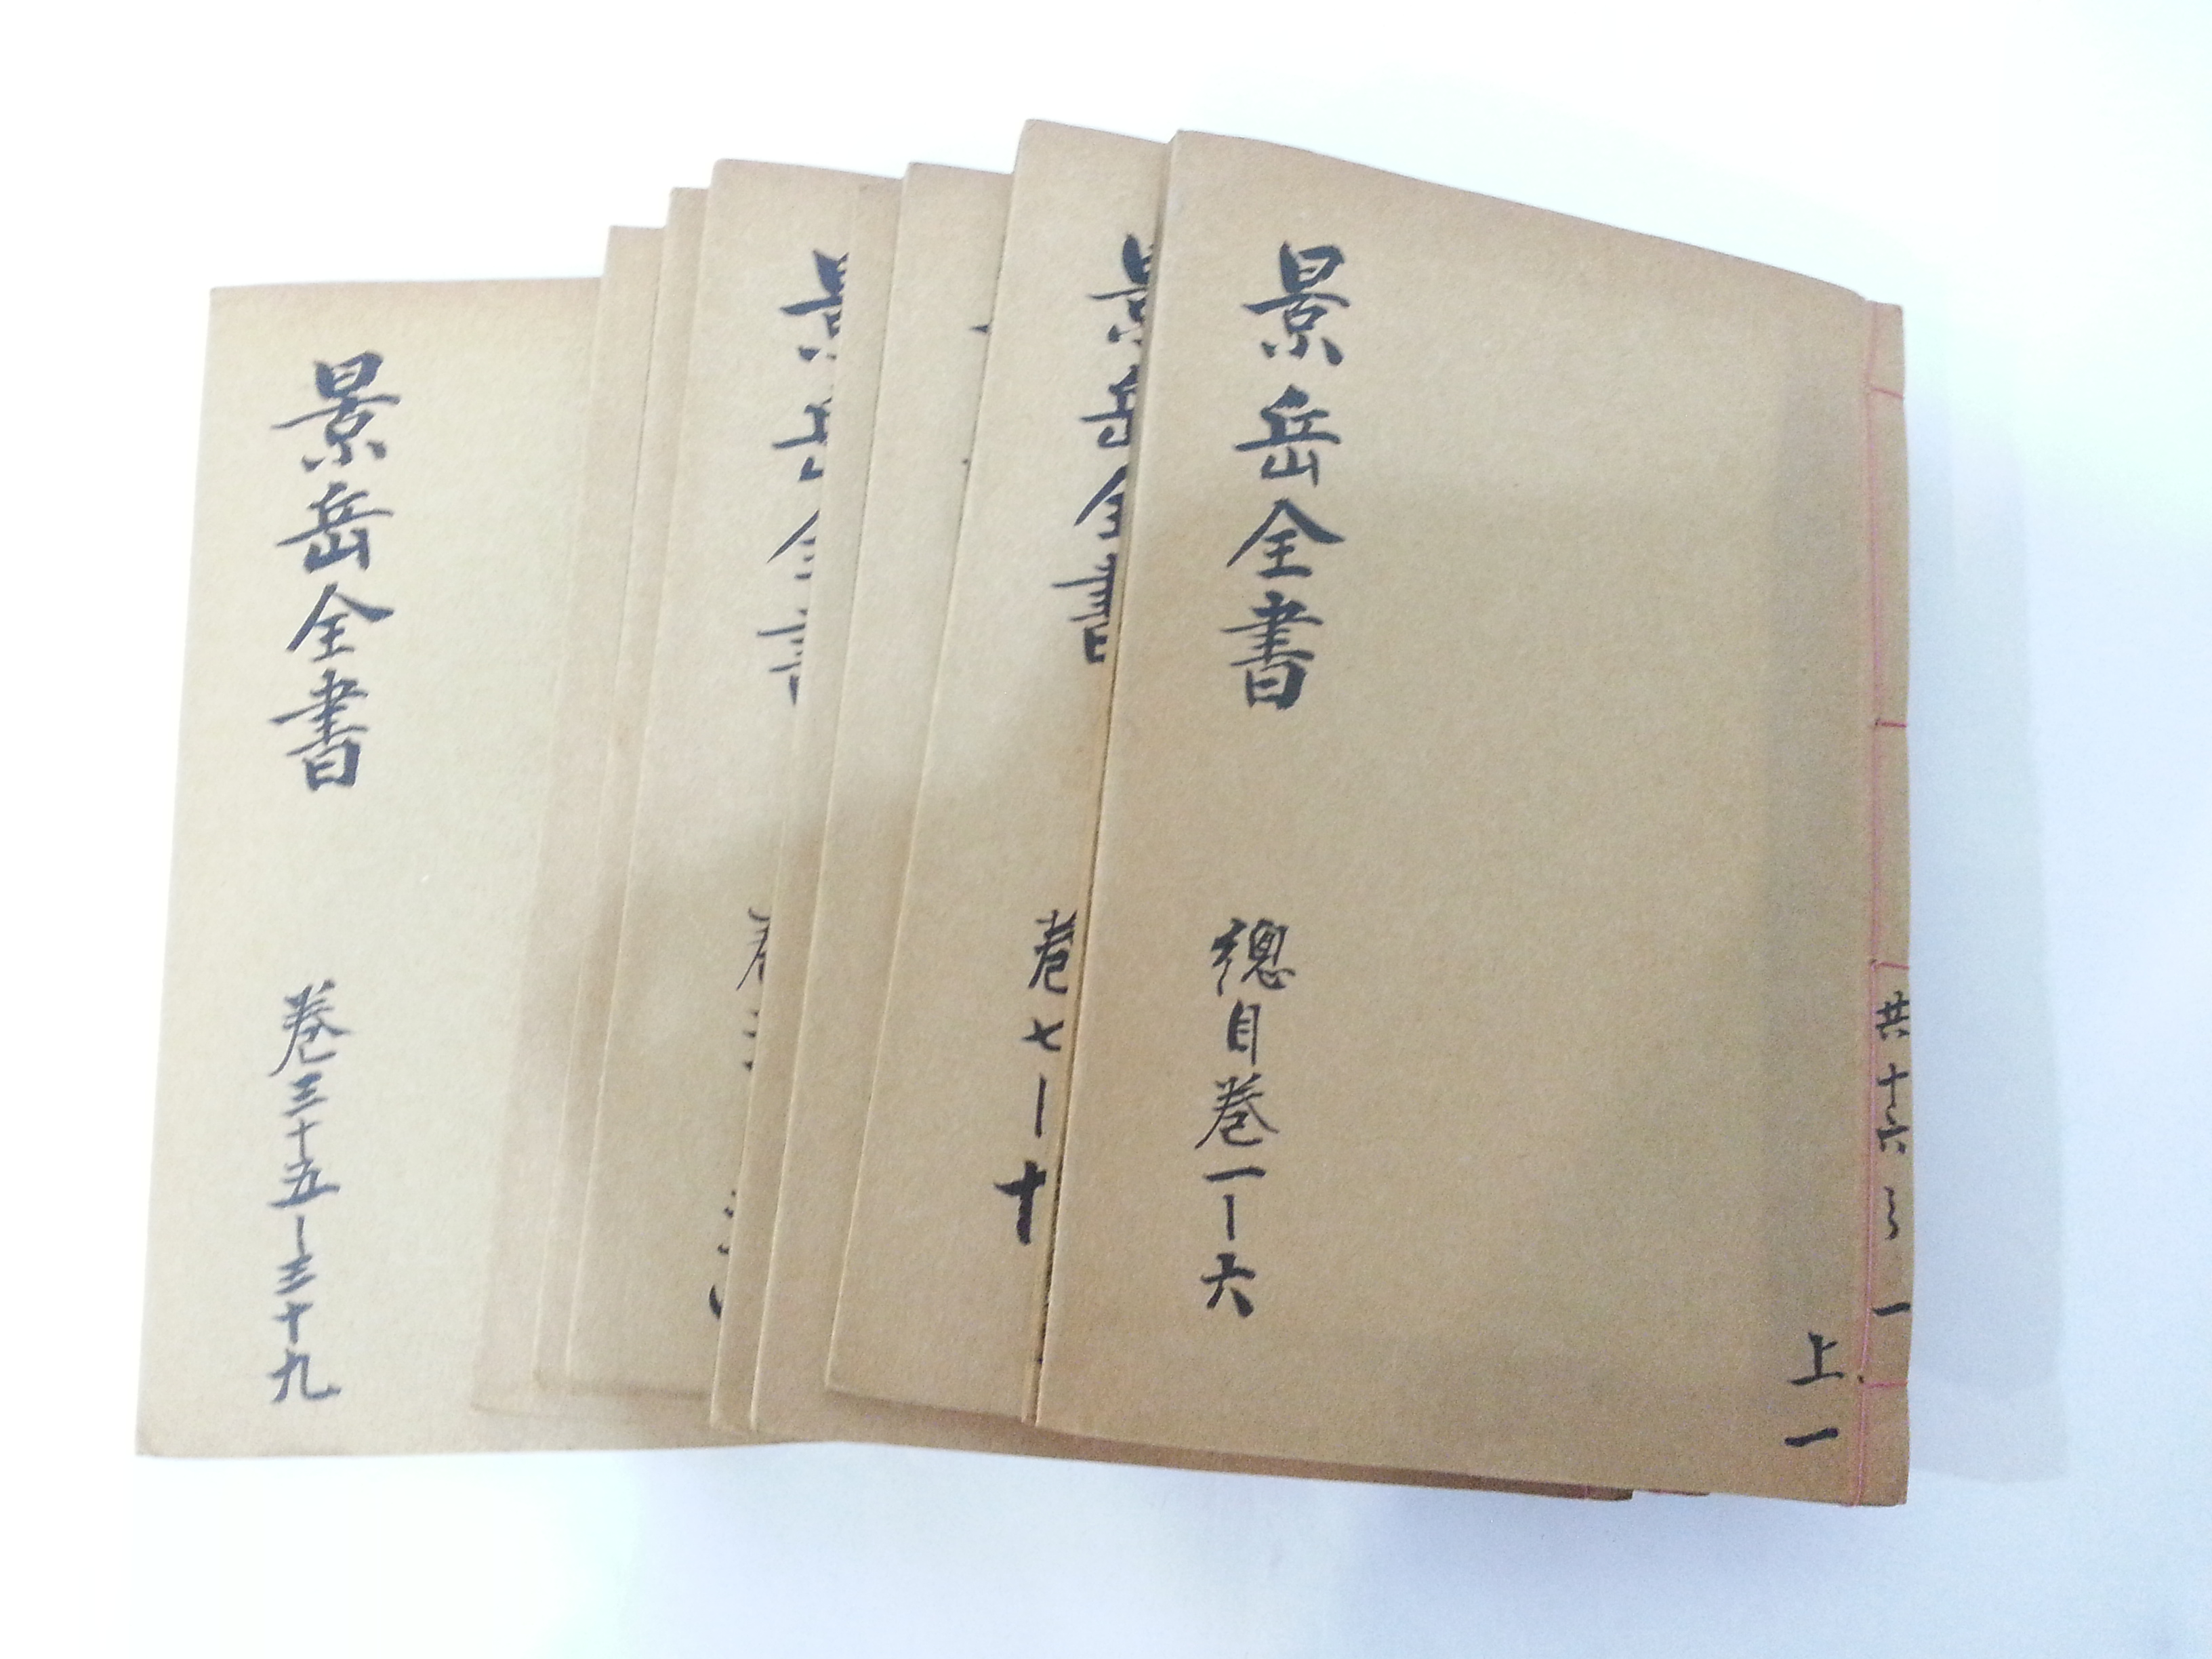 景岳全書
總目卷一－六
共十六之一
上一
景岳全書
卷七－十
景岳全書
景岳全書
卷三十五－三十九